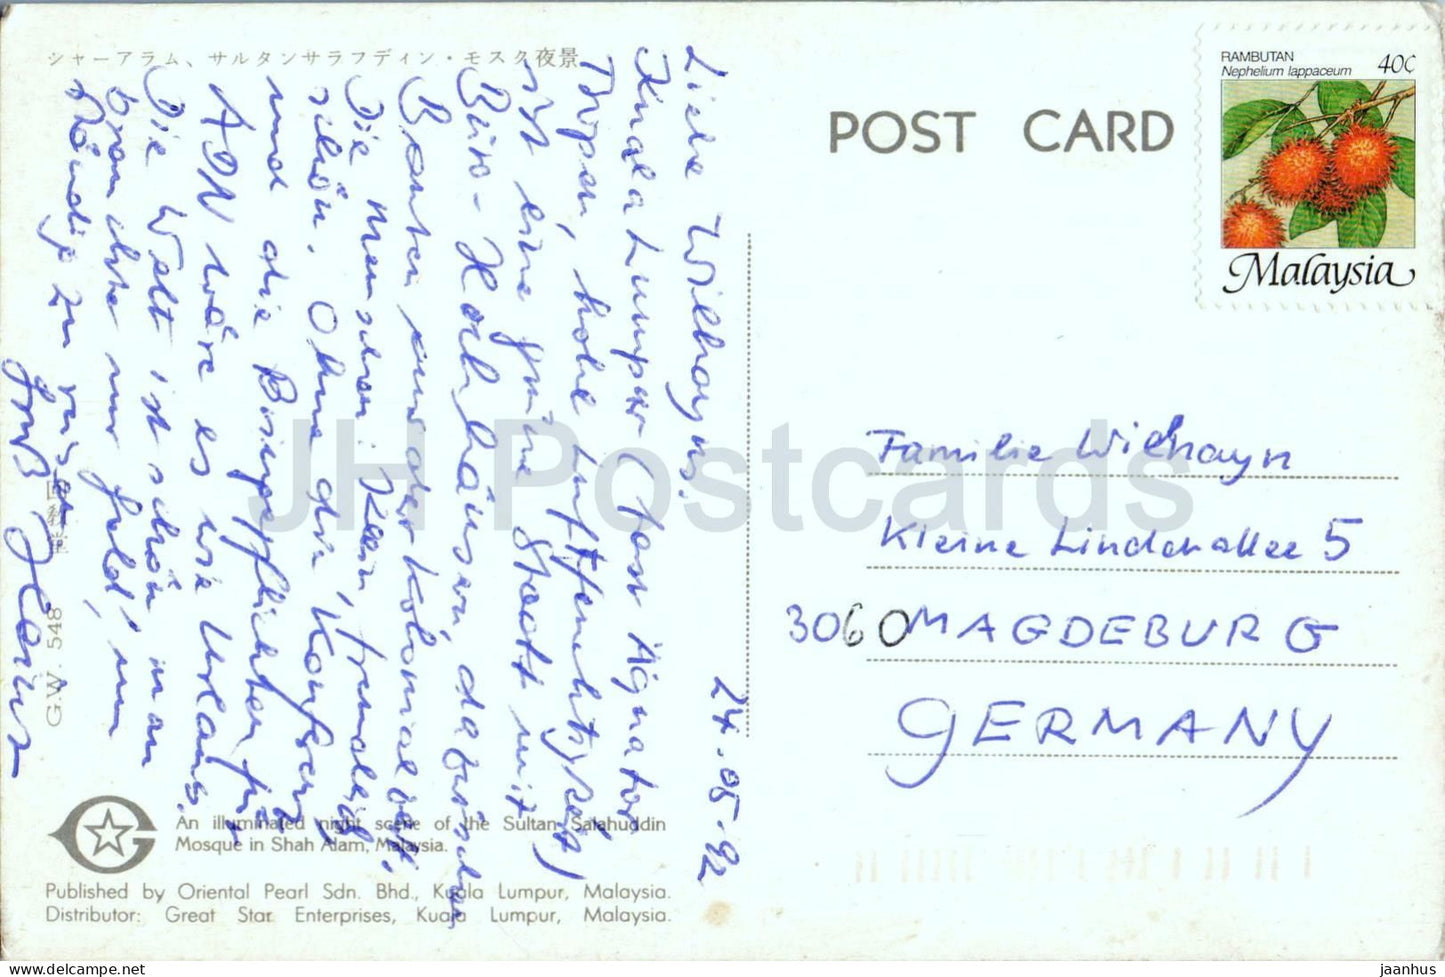 シャーアラム、サルタンサラフディン・モスク夜景
POST CARD
RAMBUTAN
Nephelium lappaceum
40C
Malaysia
24.05.92
Liebe Wilhayns!
Kuala Lumpur (fast Äquator
Tropen, hohe Luftfeuchtigkeit)
ist eine grüne Stadt mit
Büro-Hochhäusern, dazwischen
Bauten aus der Kolonialzeit,
Die Menschen: klein, freundlich
schön. Ohne die Konferenz
und die Berichtspflichten für
ADN wäre es wie Urlaub.
Die Welt ist schön, man
brauchte nur Geld, um
ständig zu reisen
Gruß, Heinz
Familie Wilhayn
Kleine Lindenallee 5
3060 MAGDEBURG
GERMANY
回教堂
G.W. 548
An illuminated night scene of the Sultan Salahuddin
Mosque in Shah Alam, Malaysia.
Published by Oriental Pearl Sdn. Bhd., Kuala Lumpur, Malaysia.
Distributor: Great Star Enterprises, Kuala Lumpur, Malaysia.
JH Postcards
jaanhus
www.delcampe.net